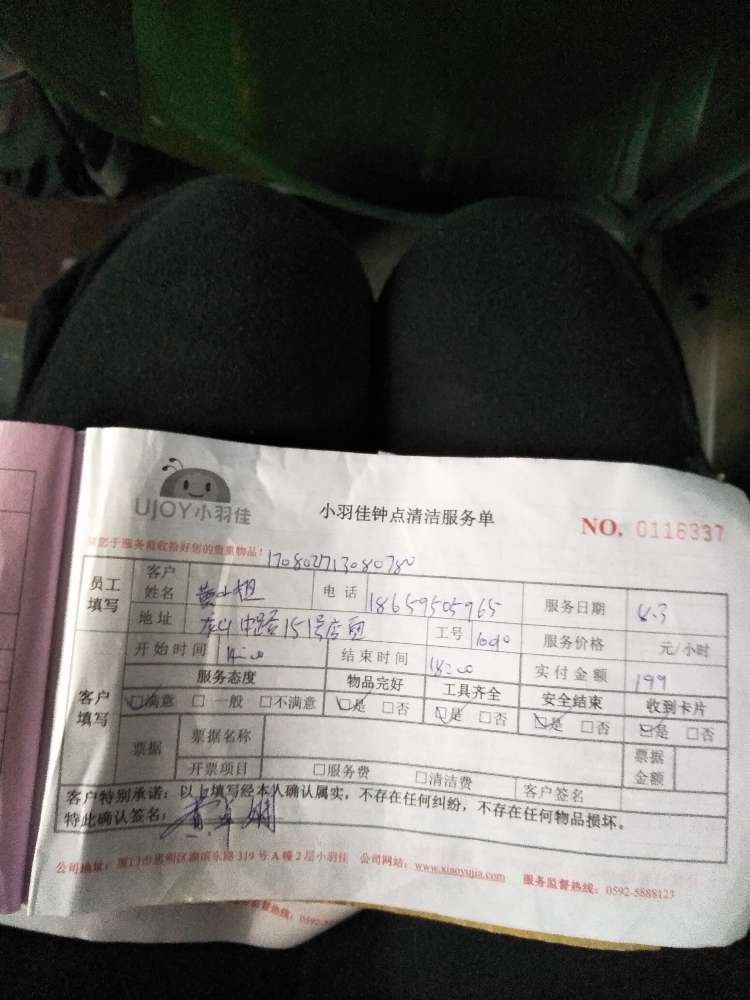 UJOY小羽佳
小羽佳钟点清洁服务单
NO. 0116337
您于服务前收拾好您的贵重物品!
170802713080780
员工填写 客户姓名 黄小姐 电话 18659505965 服务日期 4.3
地址 中路151号店面 工号 服务价格 元/小时
开始时间 14:00 结束时间 18:00 实付金额 199
客户填写 服务态度 物品完好 工具齐全 安全结束 收到卡片
☑满意 □一般 □不满意 ☑是 □否 ☑是 □否 ☑是 □否 ☑是 □否
票据 票据名称 票据金额
开票项目 □服务费 □清洁费 客户签名
客户特别承诺:以上填写经本人确认属实,不存在任何纠纷,不存在任何物品损坏。
特此确认签名:
公司地址:厦门市思明区湖滨东路319号A幢2层小羽佳 公司网站:www.xiaoyujia.com 服务监督热线:0592-5888123
监督热线:0592-5